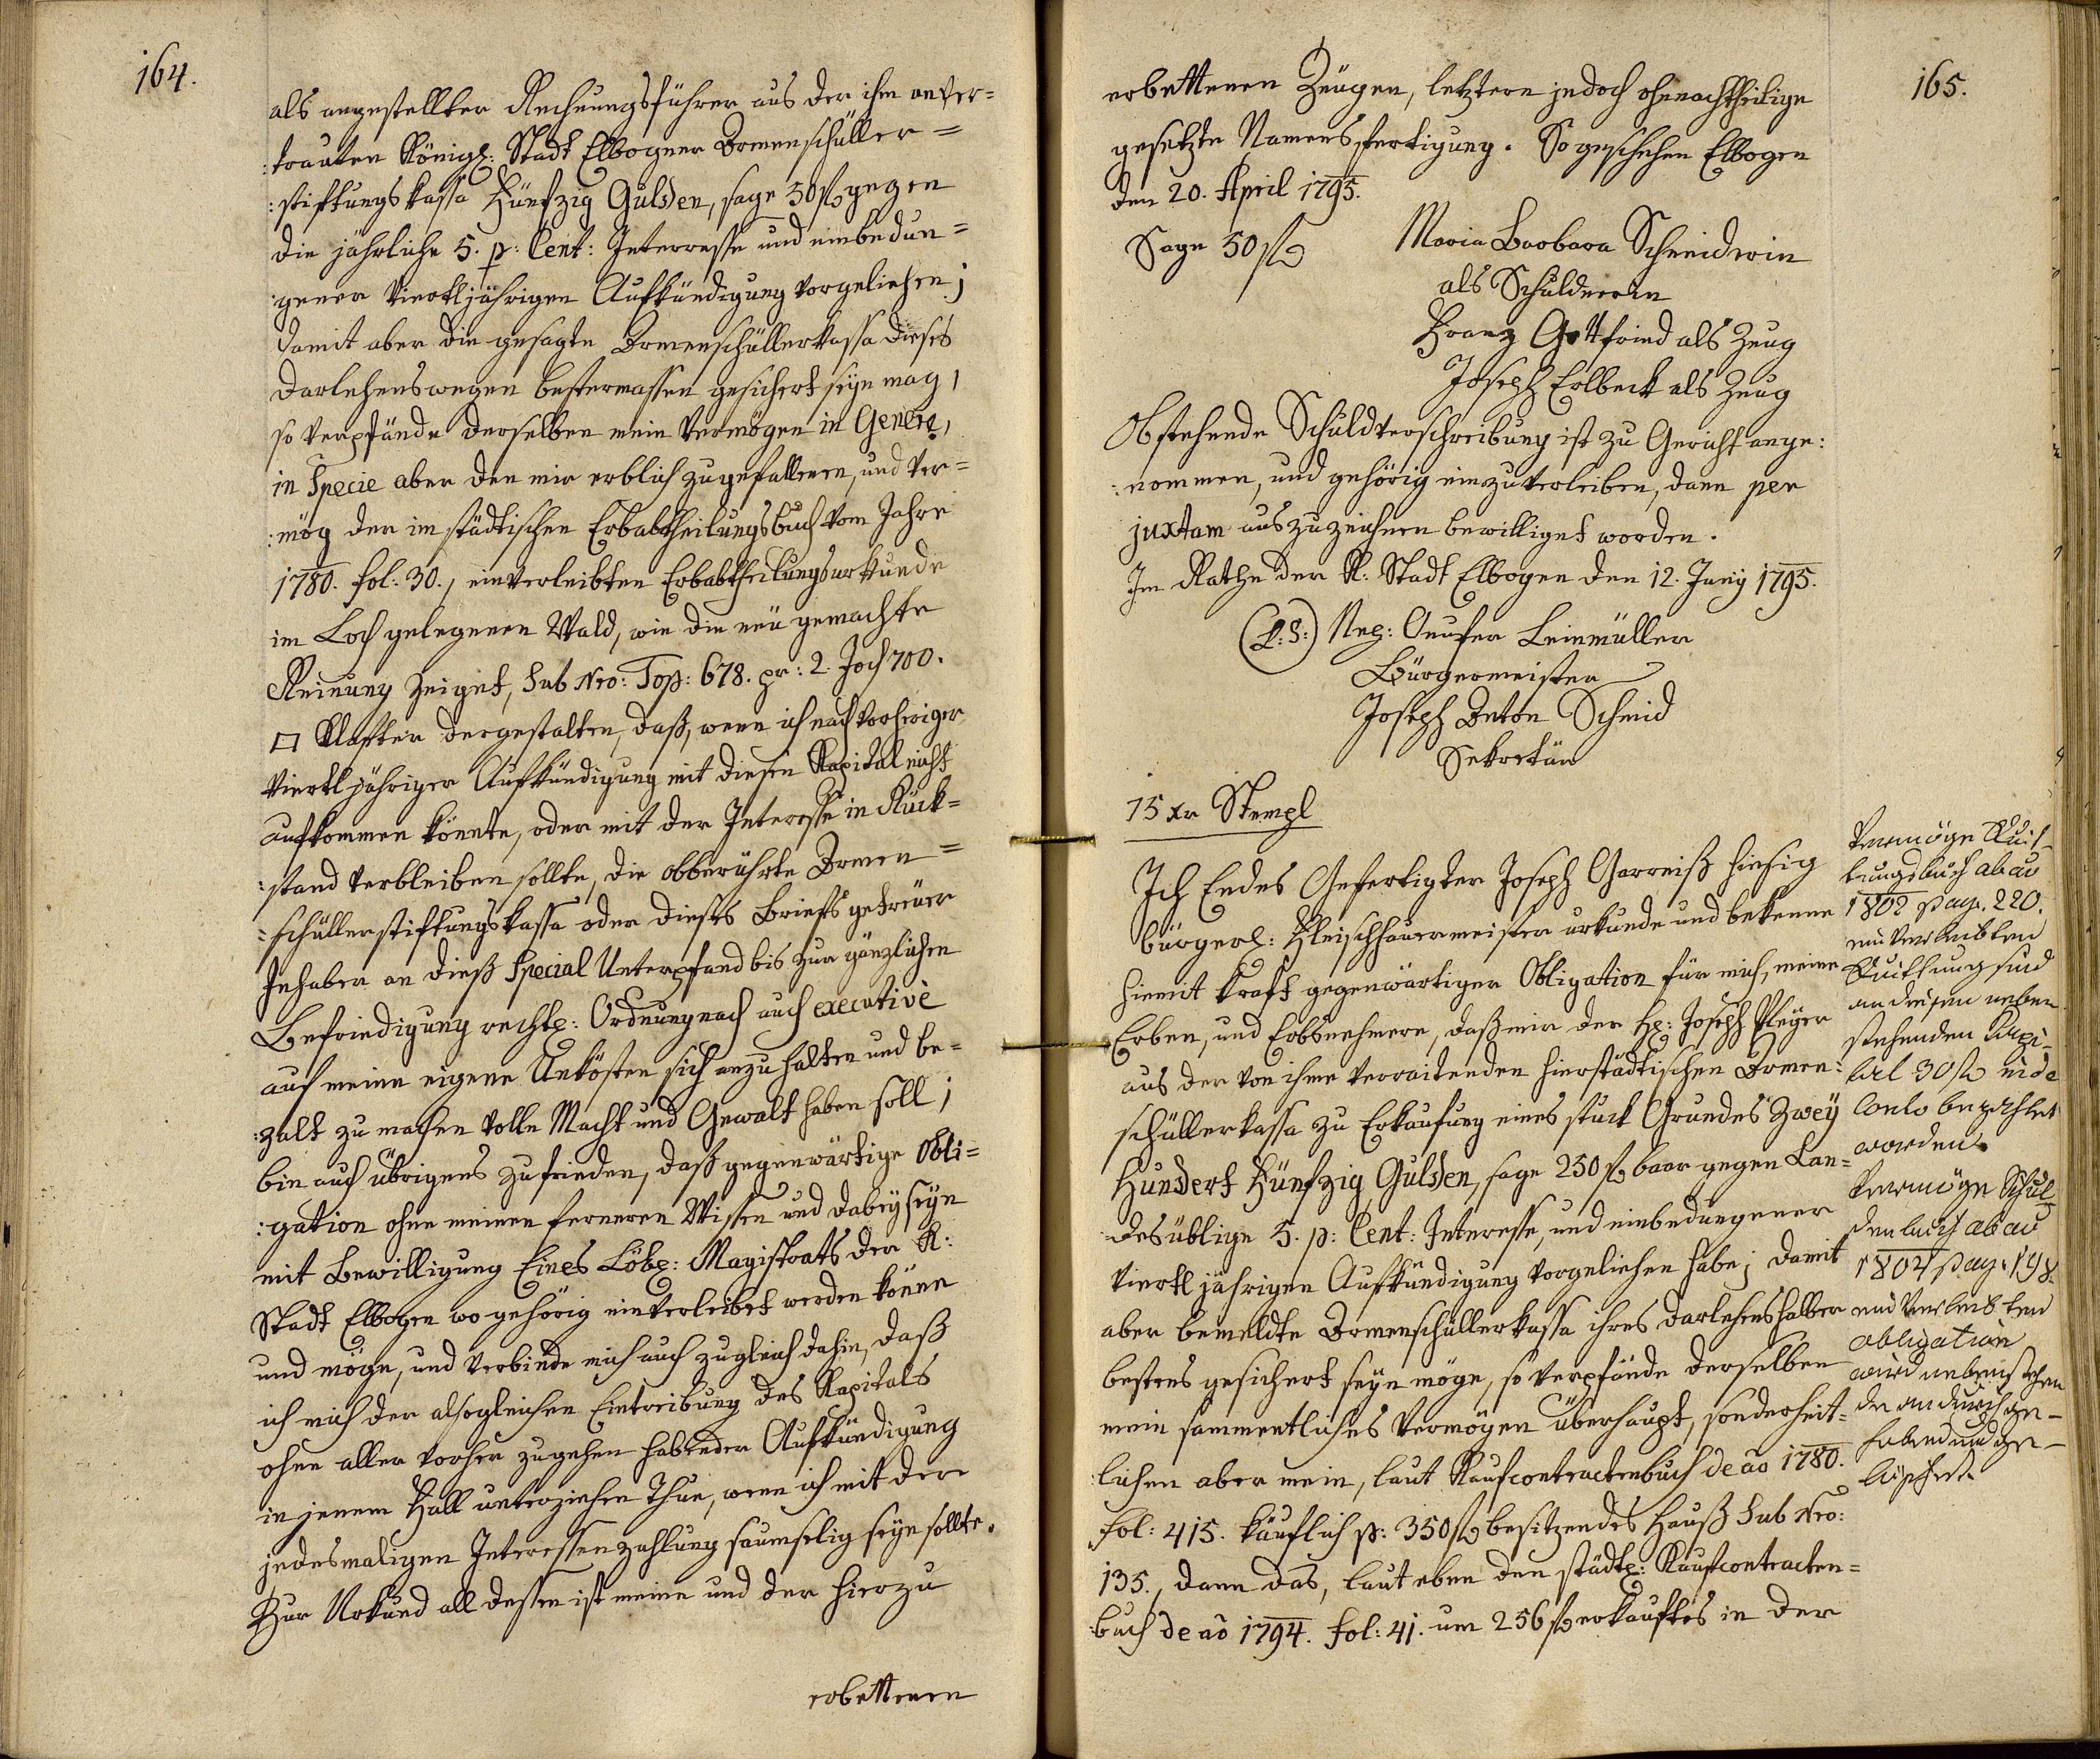 164.
als angestellter Rechnungsführer aus der ihm anver=
:trauten Königl: Stadt Elbogner Armenschüller=
:stiftungskassa Fünfzig Gulden, sage 50 fl gegen
die jährliche 5. p: Cent: Interresse und einbedun=
:gener Viertljährigen Aufkündigung vorgeliehen;
damit aber die gesagte Armenschüllerkassa dieses
Darlehenswegen bestermassen gesichert seyn mag,
so verpfände derselben mein Vermögen in Genere,
in Specie aber den mir erblich zugefallenen, und ver=
:mög der im städtischen Erbabtheilungsbuch vom Jahre
1780. fol: 30., einverleibten Erbabtheilungsurkunde
im Loch gelegenen Wald, wie die neü gemachte
Reinung zeiget, Sub Nro: Top: 678. pr: 2. Joch 700.
□ Klafter dergestalten, daß, wenn ich nach vorheriger
Viertljähriger Aufkündigung mit diesen Kapital nicht
aufkommen könnte, oder mit der Interesse in Rück=
:stand verbleiben sollte, die obberührte Armen=
=schüllerstiftungskassa oder dieses Briefs getreüer
Inhaber an dieß Special Unterpfand bis zur gänzlichen
Befriedigung rechtl: Ordnung nach auch executivè
auf meine eigene Unkösten sich anzuhalten und be=
:zalt zu machen volle Macht und Gewalt haben soll;
bin auch übrigens zufrieden, daß gegenwärtige Obli=
:gation ohne meinen ferneren Wissen und Dabeyseyn
mit Bewilligung Eines Löbl: Magistrats der K:
Stadt Elbogen wo gehörig einverleibet werden könne
und möge, und verbinde mich auch zugleich dahin, daß
ich mich der alsogleichen Eintreibung des Kapitals
ohne aller vorher zugehen habender Aufkündigung
in jenem Fall unterziehen Thue, wenn ich mit der
jedesmaligen Interessenzahlung saumselig seyn sollte.
Zur Urkund all dessen ist meine und der hierzu
erbettenen
165.
erbettenen Zeügen, letztern jedoch ohnnachtheilige
gesetzte Namensfertigung. So geschehen Elbogen
den 20. April 1795.
Sage 50 fl
Maria Barbara Schneiderin
als Schuldnerin
Franz Gottfried als Zeug
Joseph Erlbeck als Zeug
Obstehende Schuldverschreibung ist zu Gericht ange:
:nommen, und gehörig einzuverleiben, dann per
juxtam auszuzeichnen bewilliget worden.
Im Rathe der K: Stadt Elbogen den 12. Juny 1795.
(L:S:) Nep: Leinmüller
Bürgermeister
Joseph Anton Schmid
Sekretär
15 xr Stempl
Ich Endes Gefertigter Joseph Garreiß hiesig
bürgerl: Fleischhauermeister urkunde und bekenne
hiemit kraft gegenwärtiger Obligation für mich, meine
Erben, und Erbsnehmere, daß mir der H: Joseph Pleyer
aus der von ihme verraitenden hierstädtischen Armen:
schüllerkassa zu Erkaufung eines stuck Grundes Zwey
Hundert Fünfzig Gulden, sage 250 fl baar gegen Lan=
desüblige 5. p: Cent: Interesse, und einbedungener
Viertljährigen Aufkündigung vorgeliehen habe; Damit
aber bemeldte Armenschüllerkassa ihres Darlehenshalber
bestens gesichert seyn möge, so verpfände derselben
mein sammentliches Vermögen überhaupt, sonderheit=
lichen aber mein, laut Kaufcontractenbuch de aõ 1780.
fol: 415. käuflich p: 350 fl besitzendes Hauß Sub Nro:
135., dann das, laut eben den städtl: Kaufcontracten=
:buch de aõ 1794. fol: 41. um 256 fl erkauftes in der
Vermöge Quit-
tungsbuch ab aõ
1802 pag. 220.
einverleibten
Quittung sind
an diesen neben
stehenden Kapi-
tal 30 fl
Conto bezahlet
worden.
Vermöge Schul-
denbuch ab aõ
1804 pag. 198.
einverleibten
obligation
wird nebenstehen
de andurch ge-
hoben und ge-
löschet.